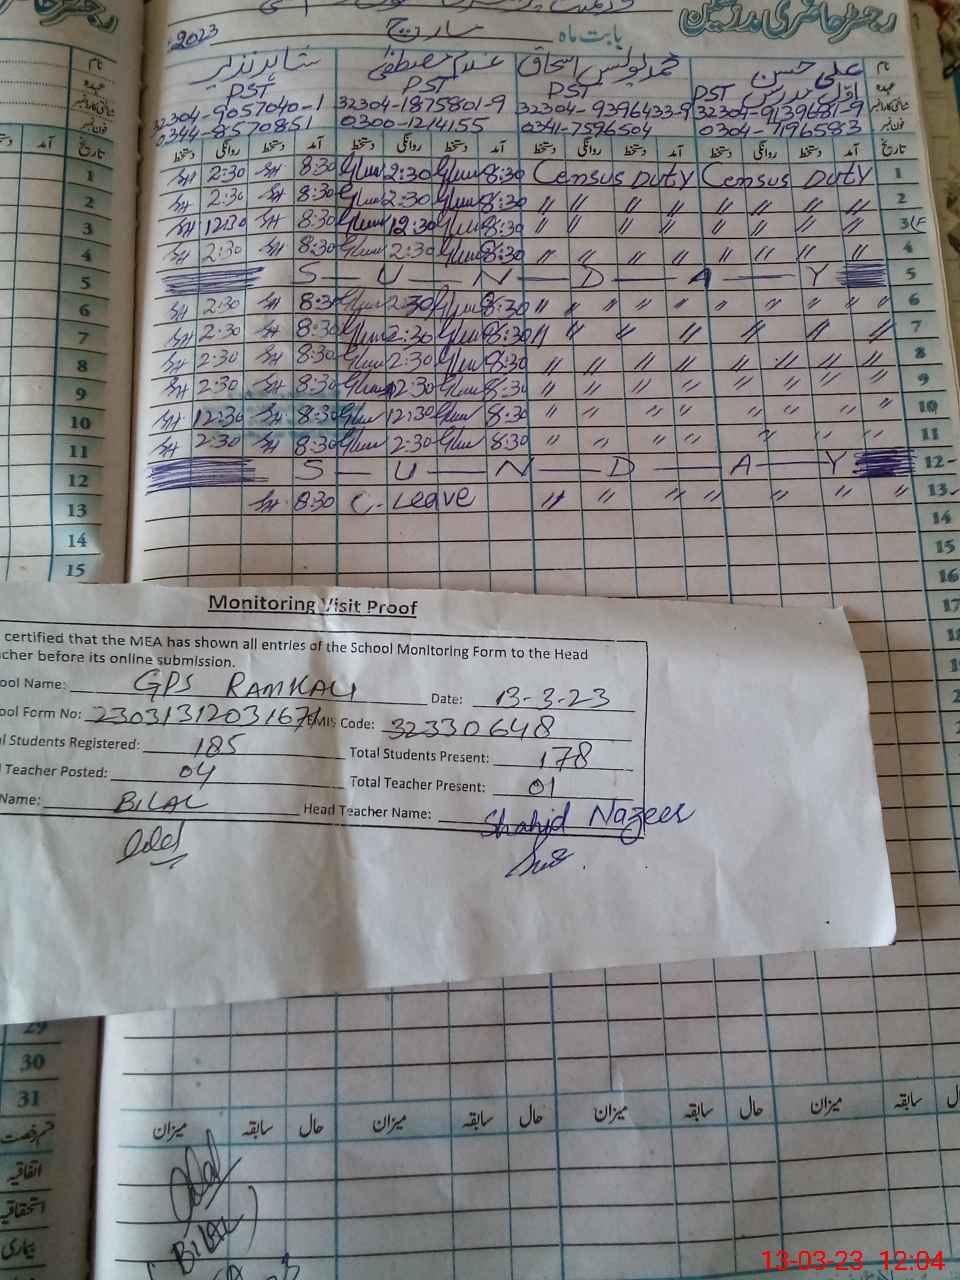 رجسٹر حاضری مدرسین
بابت ماہ مارچ 2023
نام علی حسن محمد یونس اسحاق غلام مصطفیٰ شاہد نذیر
عہدہ PST PST PST PST
شناختی کارڈ نمبر 32304-9139681-9 32304-9396433-9 32304-1875801-9 32304-9057040-1
فون نمبر 0304-7196583 0341-7596504 0300-1214155 0344-8570851
تاریخ آمد دستخط روانگی دستخط آمد دستخط روانگی دستخط آمد دستخط روانگی دستخط آمد دستخط روانگی دستخط
1 2:30 8:30 2:30 8:30 Census Duty Census Duty 1
2 2:30 8:30 2:30 8:30 〃 〃 〃 〃 〃 〃 〃 2
3 12:30 8:30 12:30 8:30 〃 〃 〃 〃 〃 〃 〃 3
4 2:30 8:30 2:30 8:30 〃 〃 〃 〃 〃 〃 〃 4
5 S — U — N — D — A — Y 5
6 2:30 8:30 2:30 8:30 〃 〃 〃 〃 〃 〃 〃 〃 6
7 2:30 8:30 2:30 8:30 〃 〃 〃 〃 〃 〃 7
8 2:30 8:30 2:30 8:30 〃 〃 〃 〃 〃 〃 〃 〃 8
9 2:30 8:30 2:30 8:30 〃 〃 〃 〃 〃 〃 〃 〃 9
10 12:30 8:30 12:30 8:30 〃 〃 〃 〃 〃 〃 〃 10
11 2:30 8:30 2:30 8:30 〃 〃 〃 〃 〃 〃 11
12 S — U — N — D — A — Y 12
13 8:30 C. Leave 〃 〃 〃 〃 〃 〃 〃 〃 13
14 14
15 15
16
17
Monitoring Visit Proof
certified that the MEA has shown all entries of the School Monitoring Form to the Head
cher before its online submission.
ool Name: GPS RAMKALI Date: 13-3-23
ool Form No: EMIS Code: 32330648
l Students Registered: 185 Total Students Present: 178
Teacher Posted: 04 Total Teacher Present: 01
Name: BILAL Head Teacher Name: Shahid Nazeer
29
30
31
میزان سابقہ حال میزان سابقہ حال میزان سابقہ حال میزان سابقہ
قسم رخصت
اتفاقیہ
استحقاقیہ
بیماری
(BILAL)
13-03-23 12:04